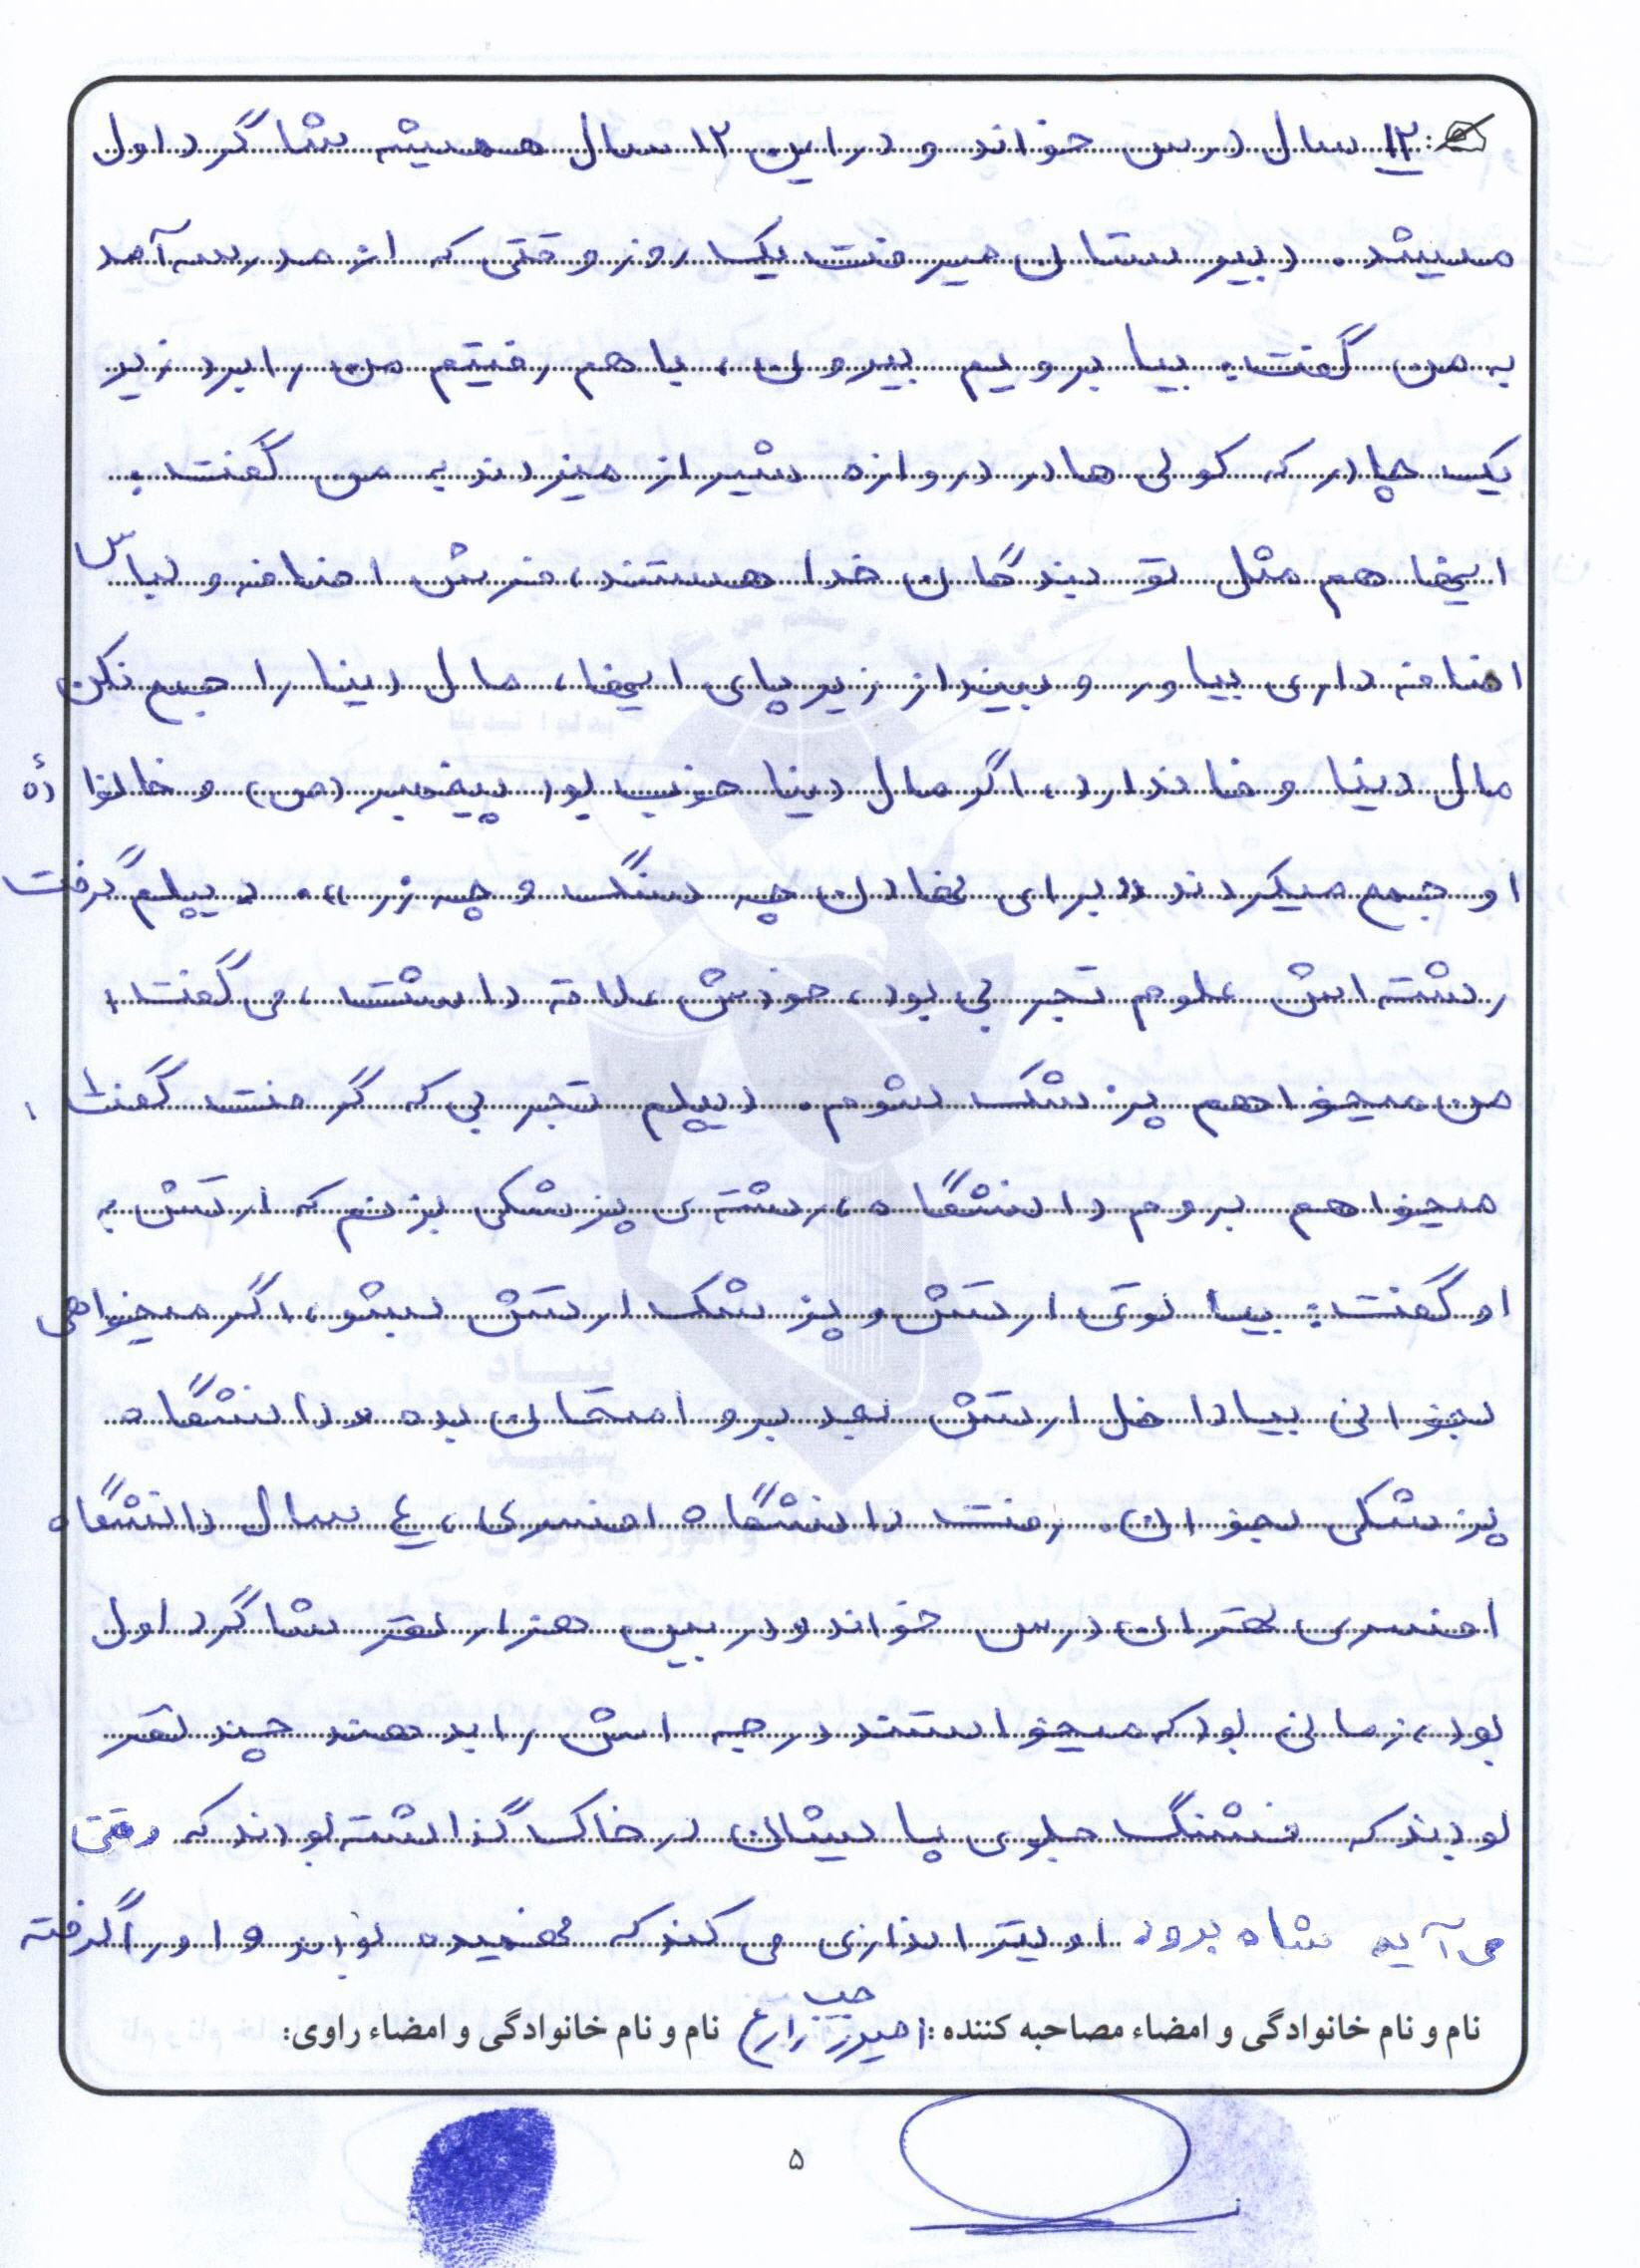 ۱۲ سال درس خواند و در این ۱۲ سال همیشه شاگرد اول
میشد. دبیرستان میرفت یک روز وقتی که از مدرسه آمد
به من گفت: بیا برویم بیرون، با هم رفتیم من را برد زیر
یک چادر که کولی ها در دروازه شیراز میزدند به من گفت:
اینها هم مثل تو بندگان خدا هستند، فرش اضافه و لباس
اضافه داری بیاور و بینداز زیر پای اینها، مال دنیا را جمع نکن
مال دنیا وفا ندارد، اگر مال دنیا خوب بود پیغمبر (ص) و خانوادهٔ
او جمع میکردند «برای نهادن چه سنگ و چه زر». دیپلم گرفت
رشته اش علوم تجربی بود، خودش علاقه داشت، می گفت:
من میخواهم پزشک شوم. دیپلم تجربی که گرفت گفت:
میخواهم بروم دانشگاه، رشته ی پزشکی بزنم که ارتش به
او گفت: بیا توی ارتش و پزشک ارتش بشو، اگر میخواهی
بخوانی بیا داخل ارتش بعد برو امتحان بده و دانشگاه
پزشکی بخوان. رفت دانشگاه افسری، ۴ سال دانشگاه
افسری تهران درس خواند و در بین هزار نفر شاگرد اول
بود، زمانی بود که میخواستند درجه اش را بدهند چند نفر
بودند که فشنگ جلوی پا یشان در خاک گذاشته بودند که وقتی
می آید شاه برود او تیراندازی می کند که فهمیده بودند و او را گرفته
نام و نام خانوادگی و امضاء مصاحبه کننده: زارع نام و نام خانوادگی و امضاء راوی:
۵